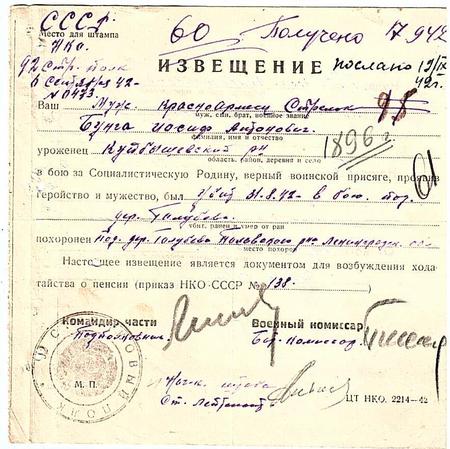 СССР
60 Получено 17 942
Место для штампа
НКО.
92 Стр. Полк
ИЗВЕЩЕНИЕ
послано 12/IX
5 Сентября 42-
42г.
№ 0473.
Ваш Муж Красноармеец Стрелок
муж, сын, брат, военное звание
98
Бунга Иосиф Антонович
фамилия, имя и отчество
1896 г
уроженец Куйбышевский р-н
область, район, деревня и село
61
в бою за Социалистическую Родину, верный воинской присяге, проявив
геройство и мужество, был убит 31.8.42 в бою под
дер. Голубево
убит, ранен и умер от ран
похоронен под дер. Голубево Ленинградск. об
место похорон
Настоящее извещение является документом для возбуждения хода-
тайства о пенсии (приказ НКО-СССР № 138.
Командир части
Военный комиссар
Подполковник
Бат. Комиссар
М. П.
Нач-к штаба
Ст. Лейтенант
ЦТ НКО. 2214—42